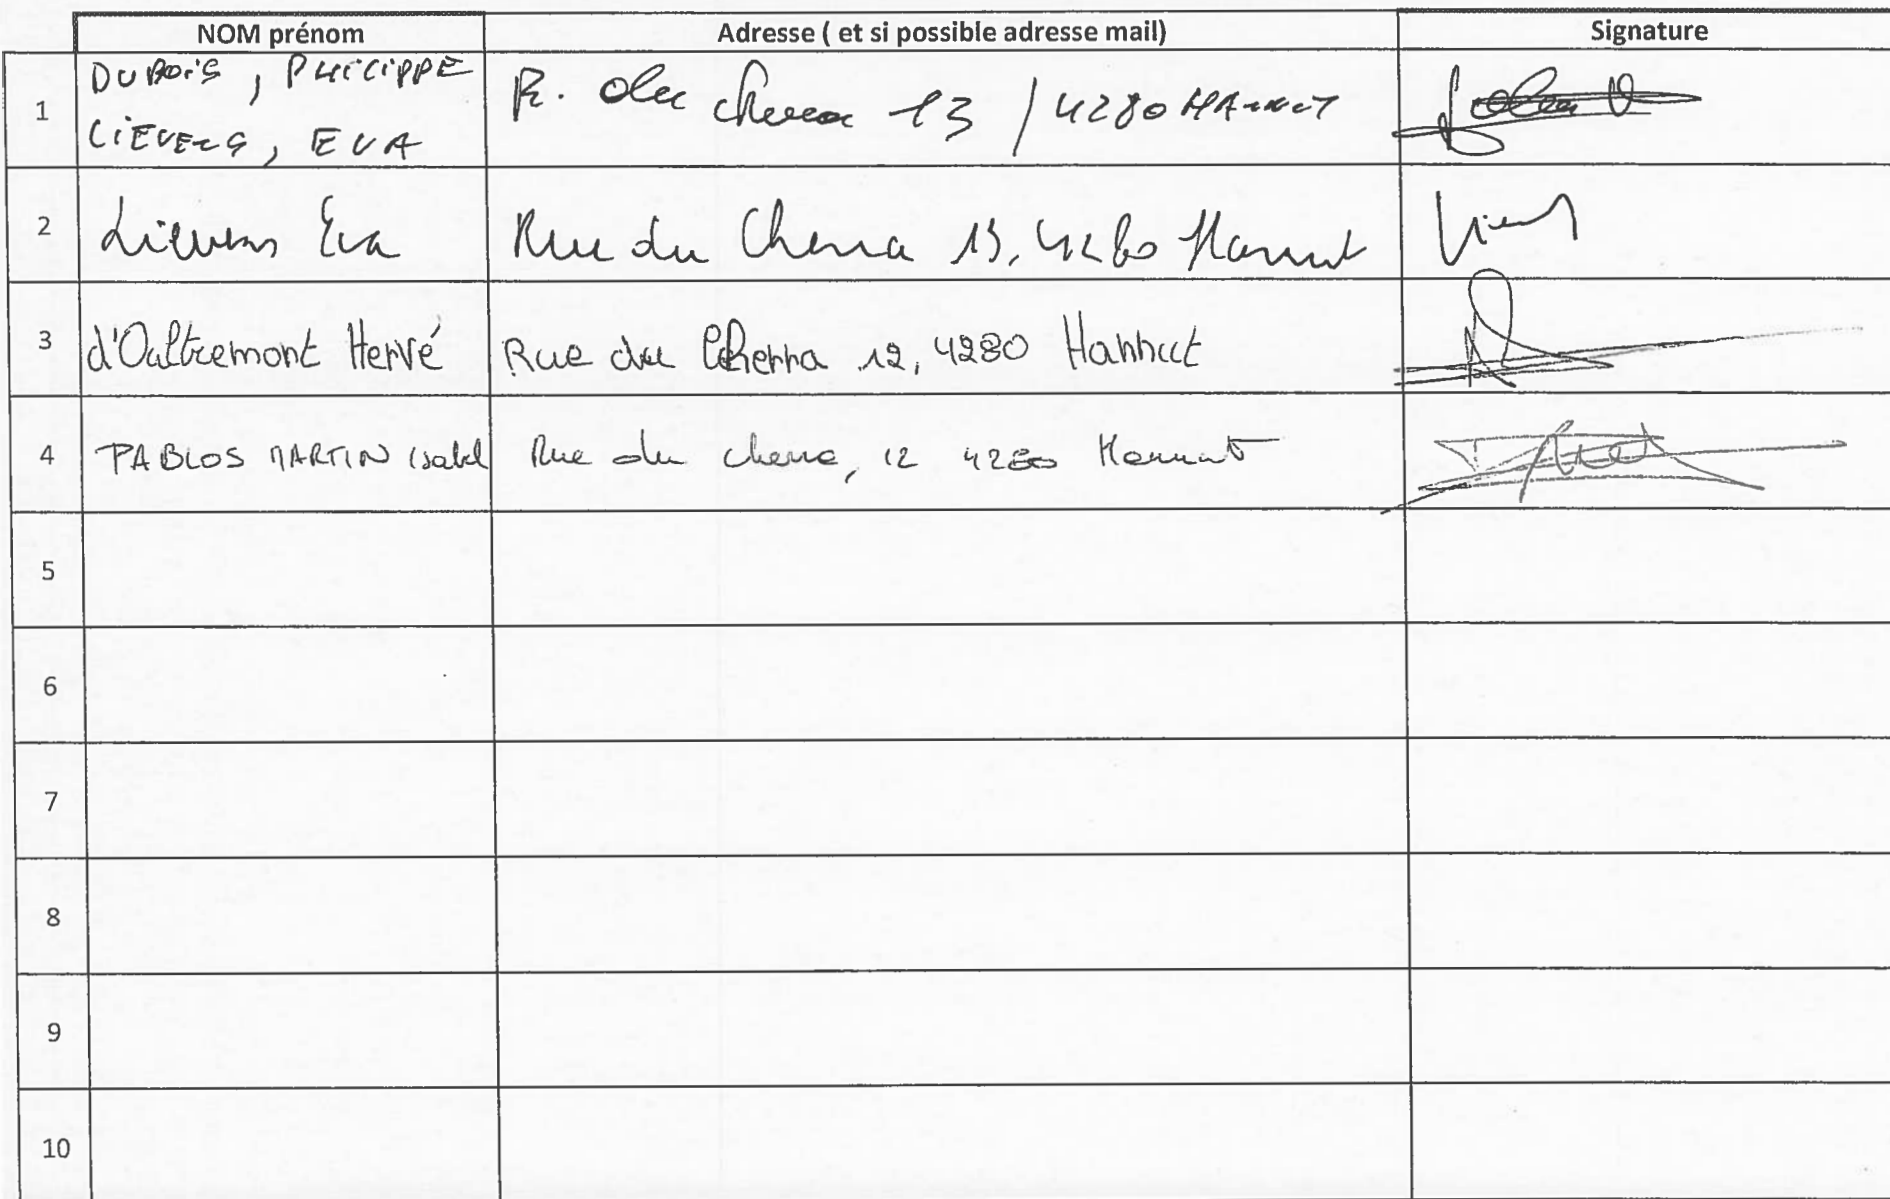 NOM prénom Adresse ( et si possible adresse mail) Signature
1 DUBOIS, PHILIPPE R. du Cherra 13 / 4280 HANNUT
LIEVENS, EVA
2 Lievens Eva Rue du Cherra 13, 4280 Hannut
3 d'Oultremont Hervé Rue du Cherra 12, 4280 Hannut
4 PABLOS MARTIN Isabel Rue du cherra, 12 4280 Hannut
5
6
7
8
9
10